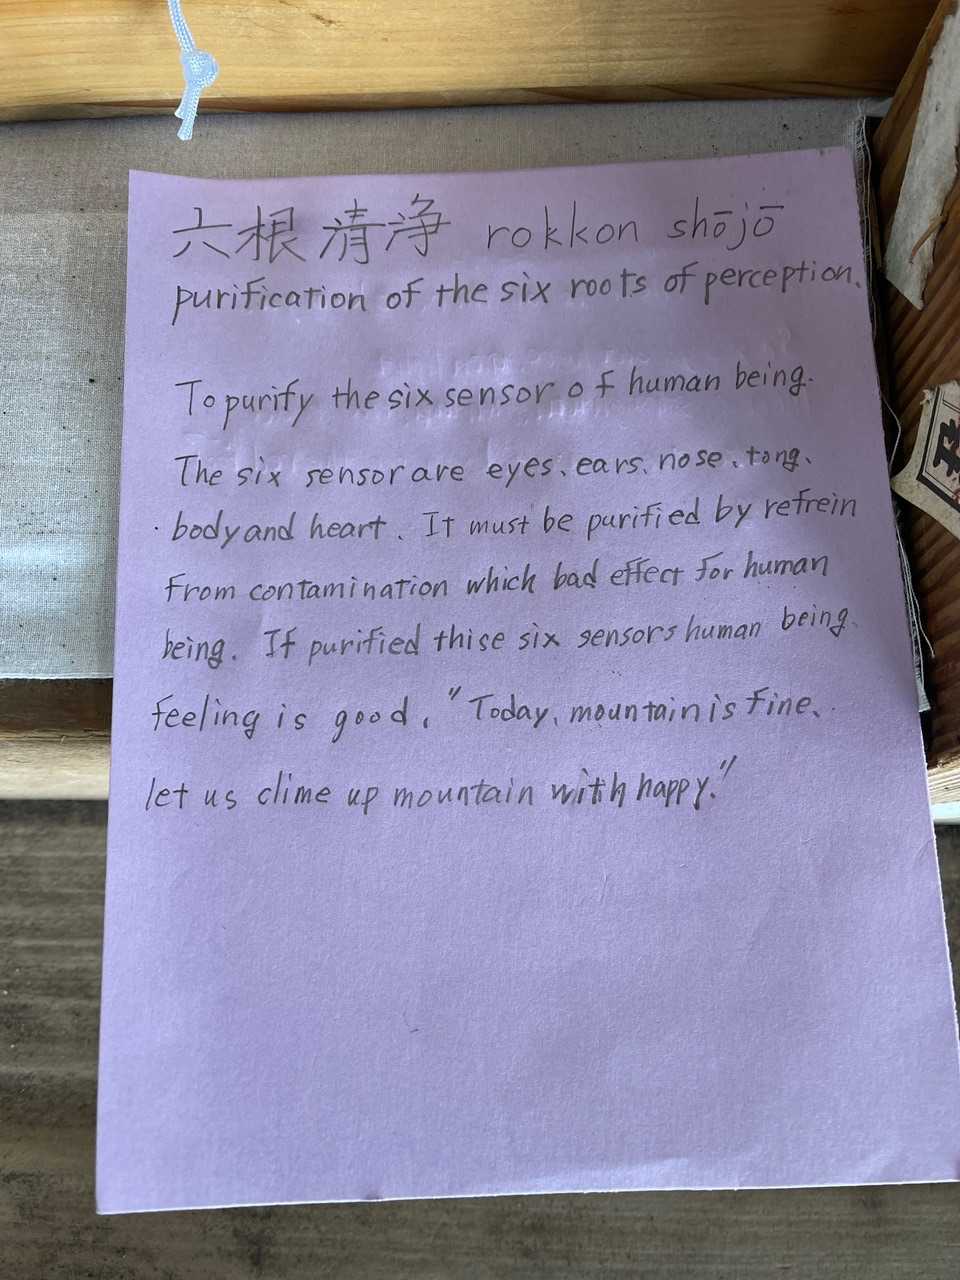 六根清浄 rokkon shōjō
purification of the six roots of perception.
To purify the six sensor of human being.
The six sensor are eyes、ears、nose、tong、
body and heart. It must be purified by refrein
from contamination which bad effect for human
being. If purified thise six sensors human being、
feeling is good. "Today、mountain is fine、
let us clime up mountain with happy."